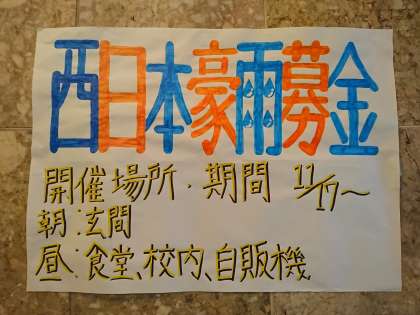 西日本豪雨募金
開催場所・期間 11/17～
朝:玄関
昼:食堂、校内、自販機